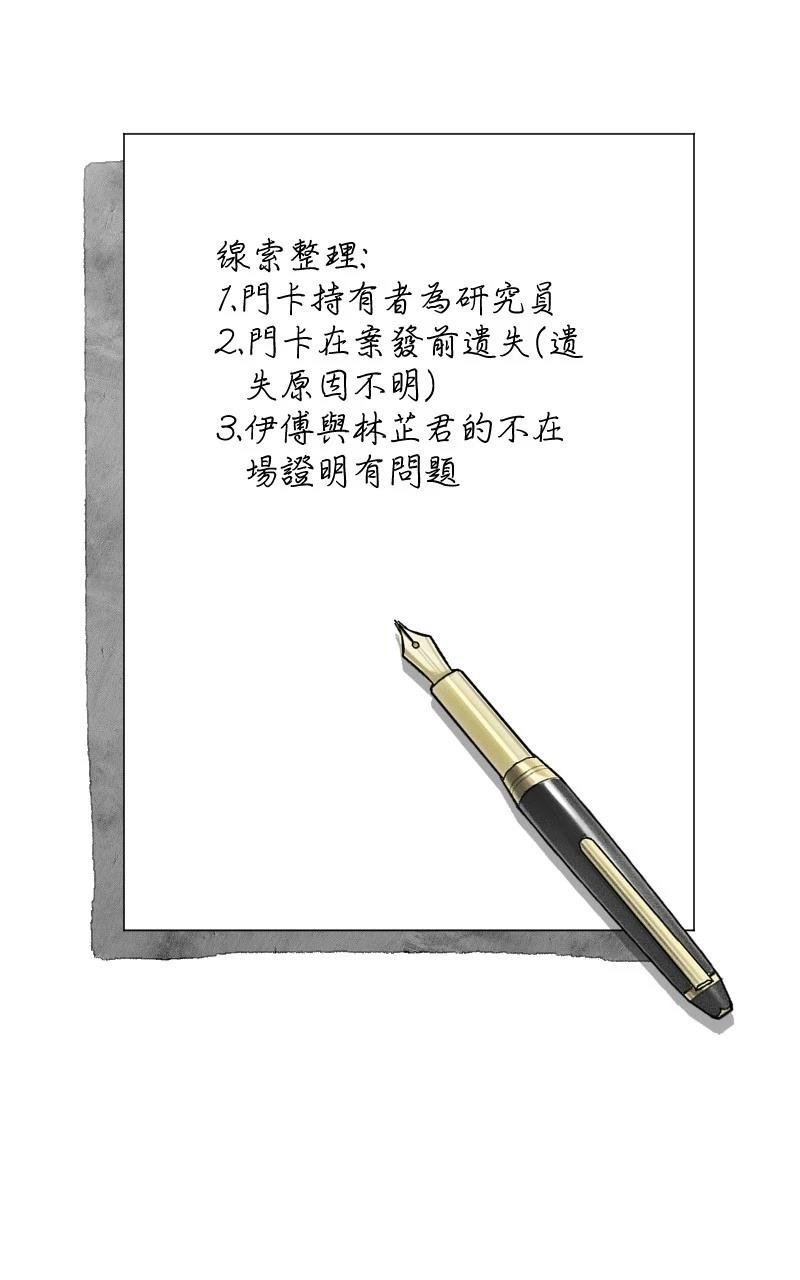 線索整理:
1.門卡持有者為研究員
2.門卡在案發前遺失(遺
失原因不明)
3.伊傅與林芷君的不在
場證明有問題